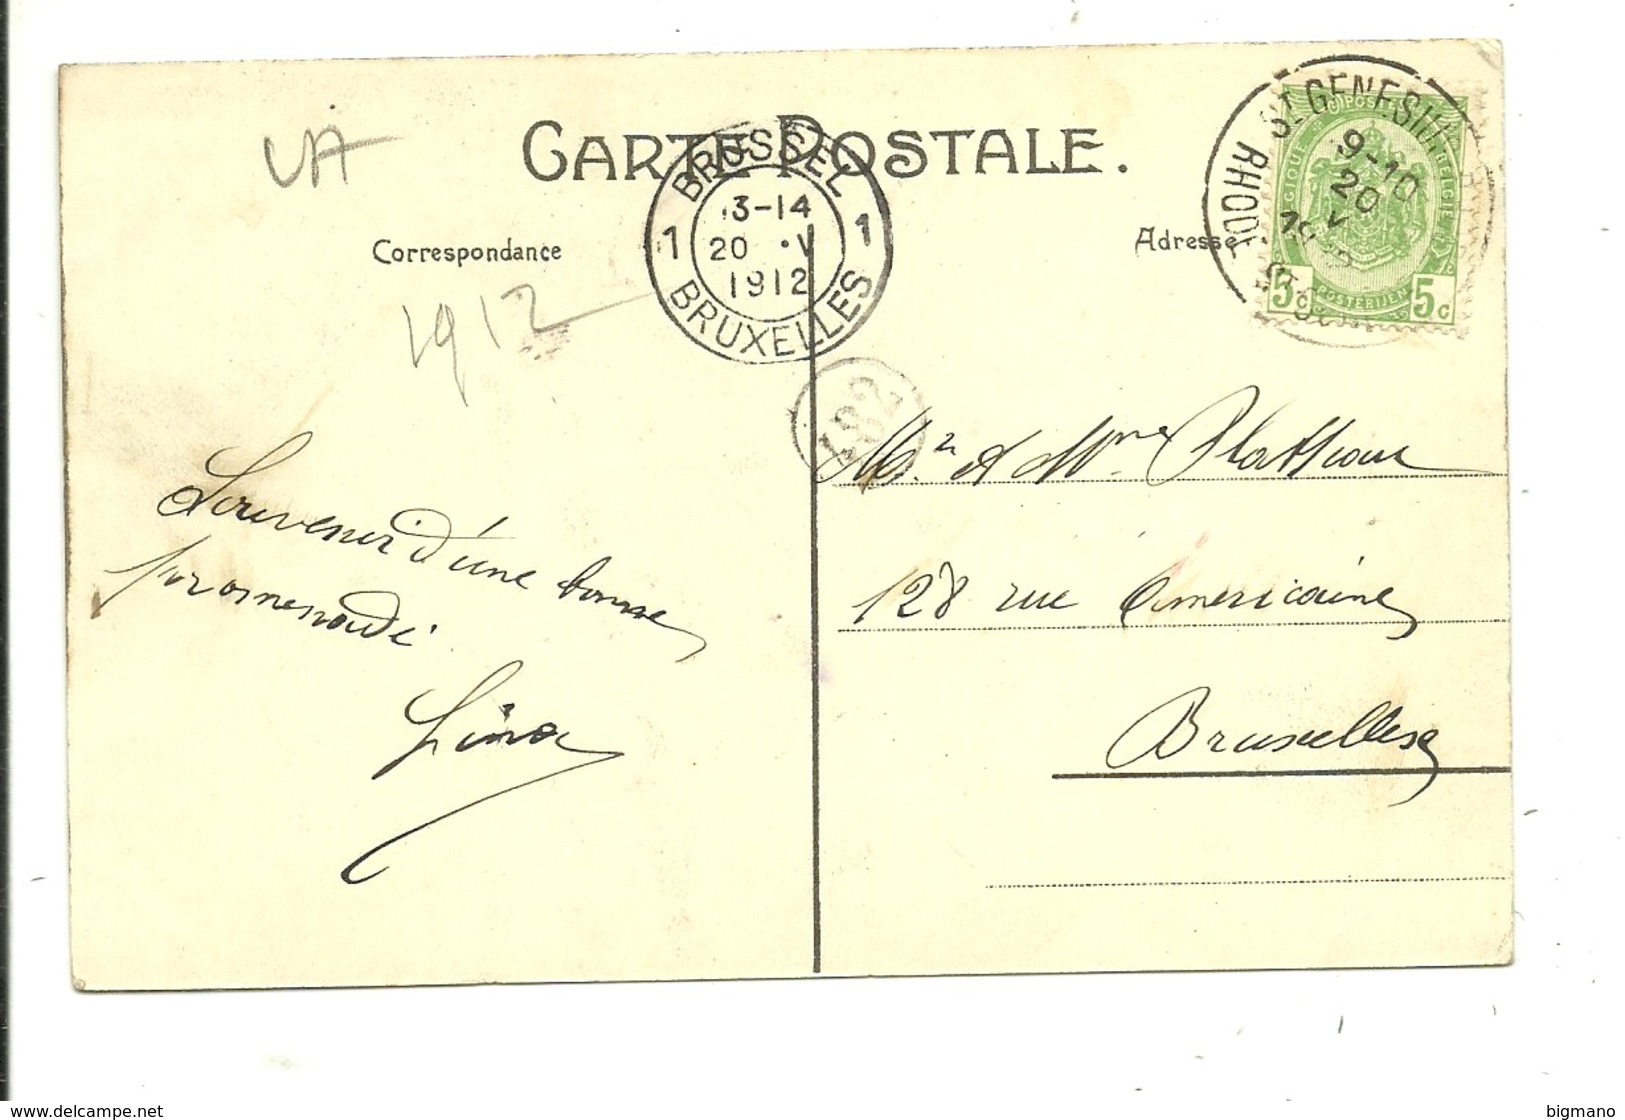 CARTE POSTALE.
Correspondance
Adresse
BRUSSEL
1 13-14 1
20 V
1912
BRUXELLES
ST GENESIUS
9-10
20 V
RHODE
BELGIQUE POSTES BELGIË
5c POSTERIJEN 5c
1912
Mr et Mme
128 rue Américaine
Bruxelles
Souvenir d'une bonne
promenade
Lina
www.delcampe.net
bigmano